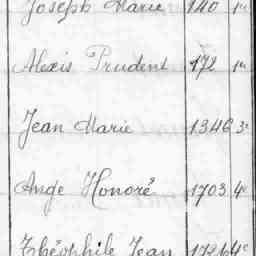 Joseph Marie 140 1er
Alexis Prudent 172 1er
Jean Marie 1346 3e
Ange Honoré 1703 4e
Théophile Jean 4e